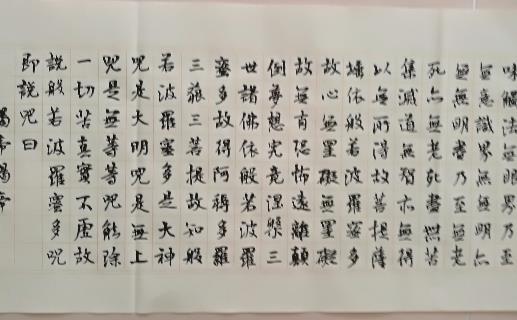 味觸法無眼界乃至
無意識界無無明亦
無無明盡乃至無老
死亦無老死盡無苦
集滅道無智亦無得
以無所得故菩提薩
埵依般若波羅蜜多
故心無罣礙無罣礙
故無有恐怖遠離顛
倒夢想究竟涅槃三
世諸佛依般若波羅
蜜多故得阿耨多羅
三藐三菩提故知般
若波羅蜜多是大神
咒是大明咒是無上
咒是無等等咒能除
一切苦真實不虛故
說般若波羅蜜多咒
即說咒曰
揭帝揭帝